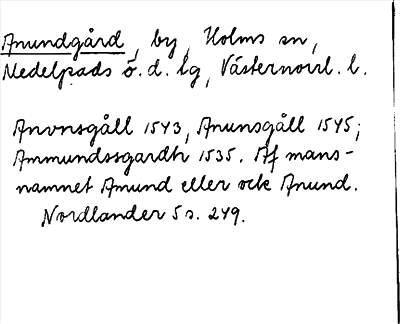 Anundgård, by, Holms sn,
Medelpads ö. d. lg, Västernorrl. l.
Anvnsgåll 1543, Anunsgåll 1545;
Ammundssgardh 1535. Af mans-
namnet Amund eller ock Anund.
Nordlander 5 s. 249.